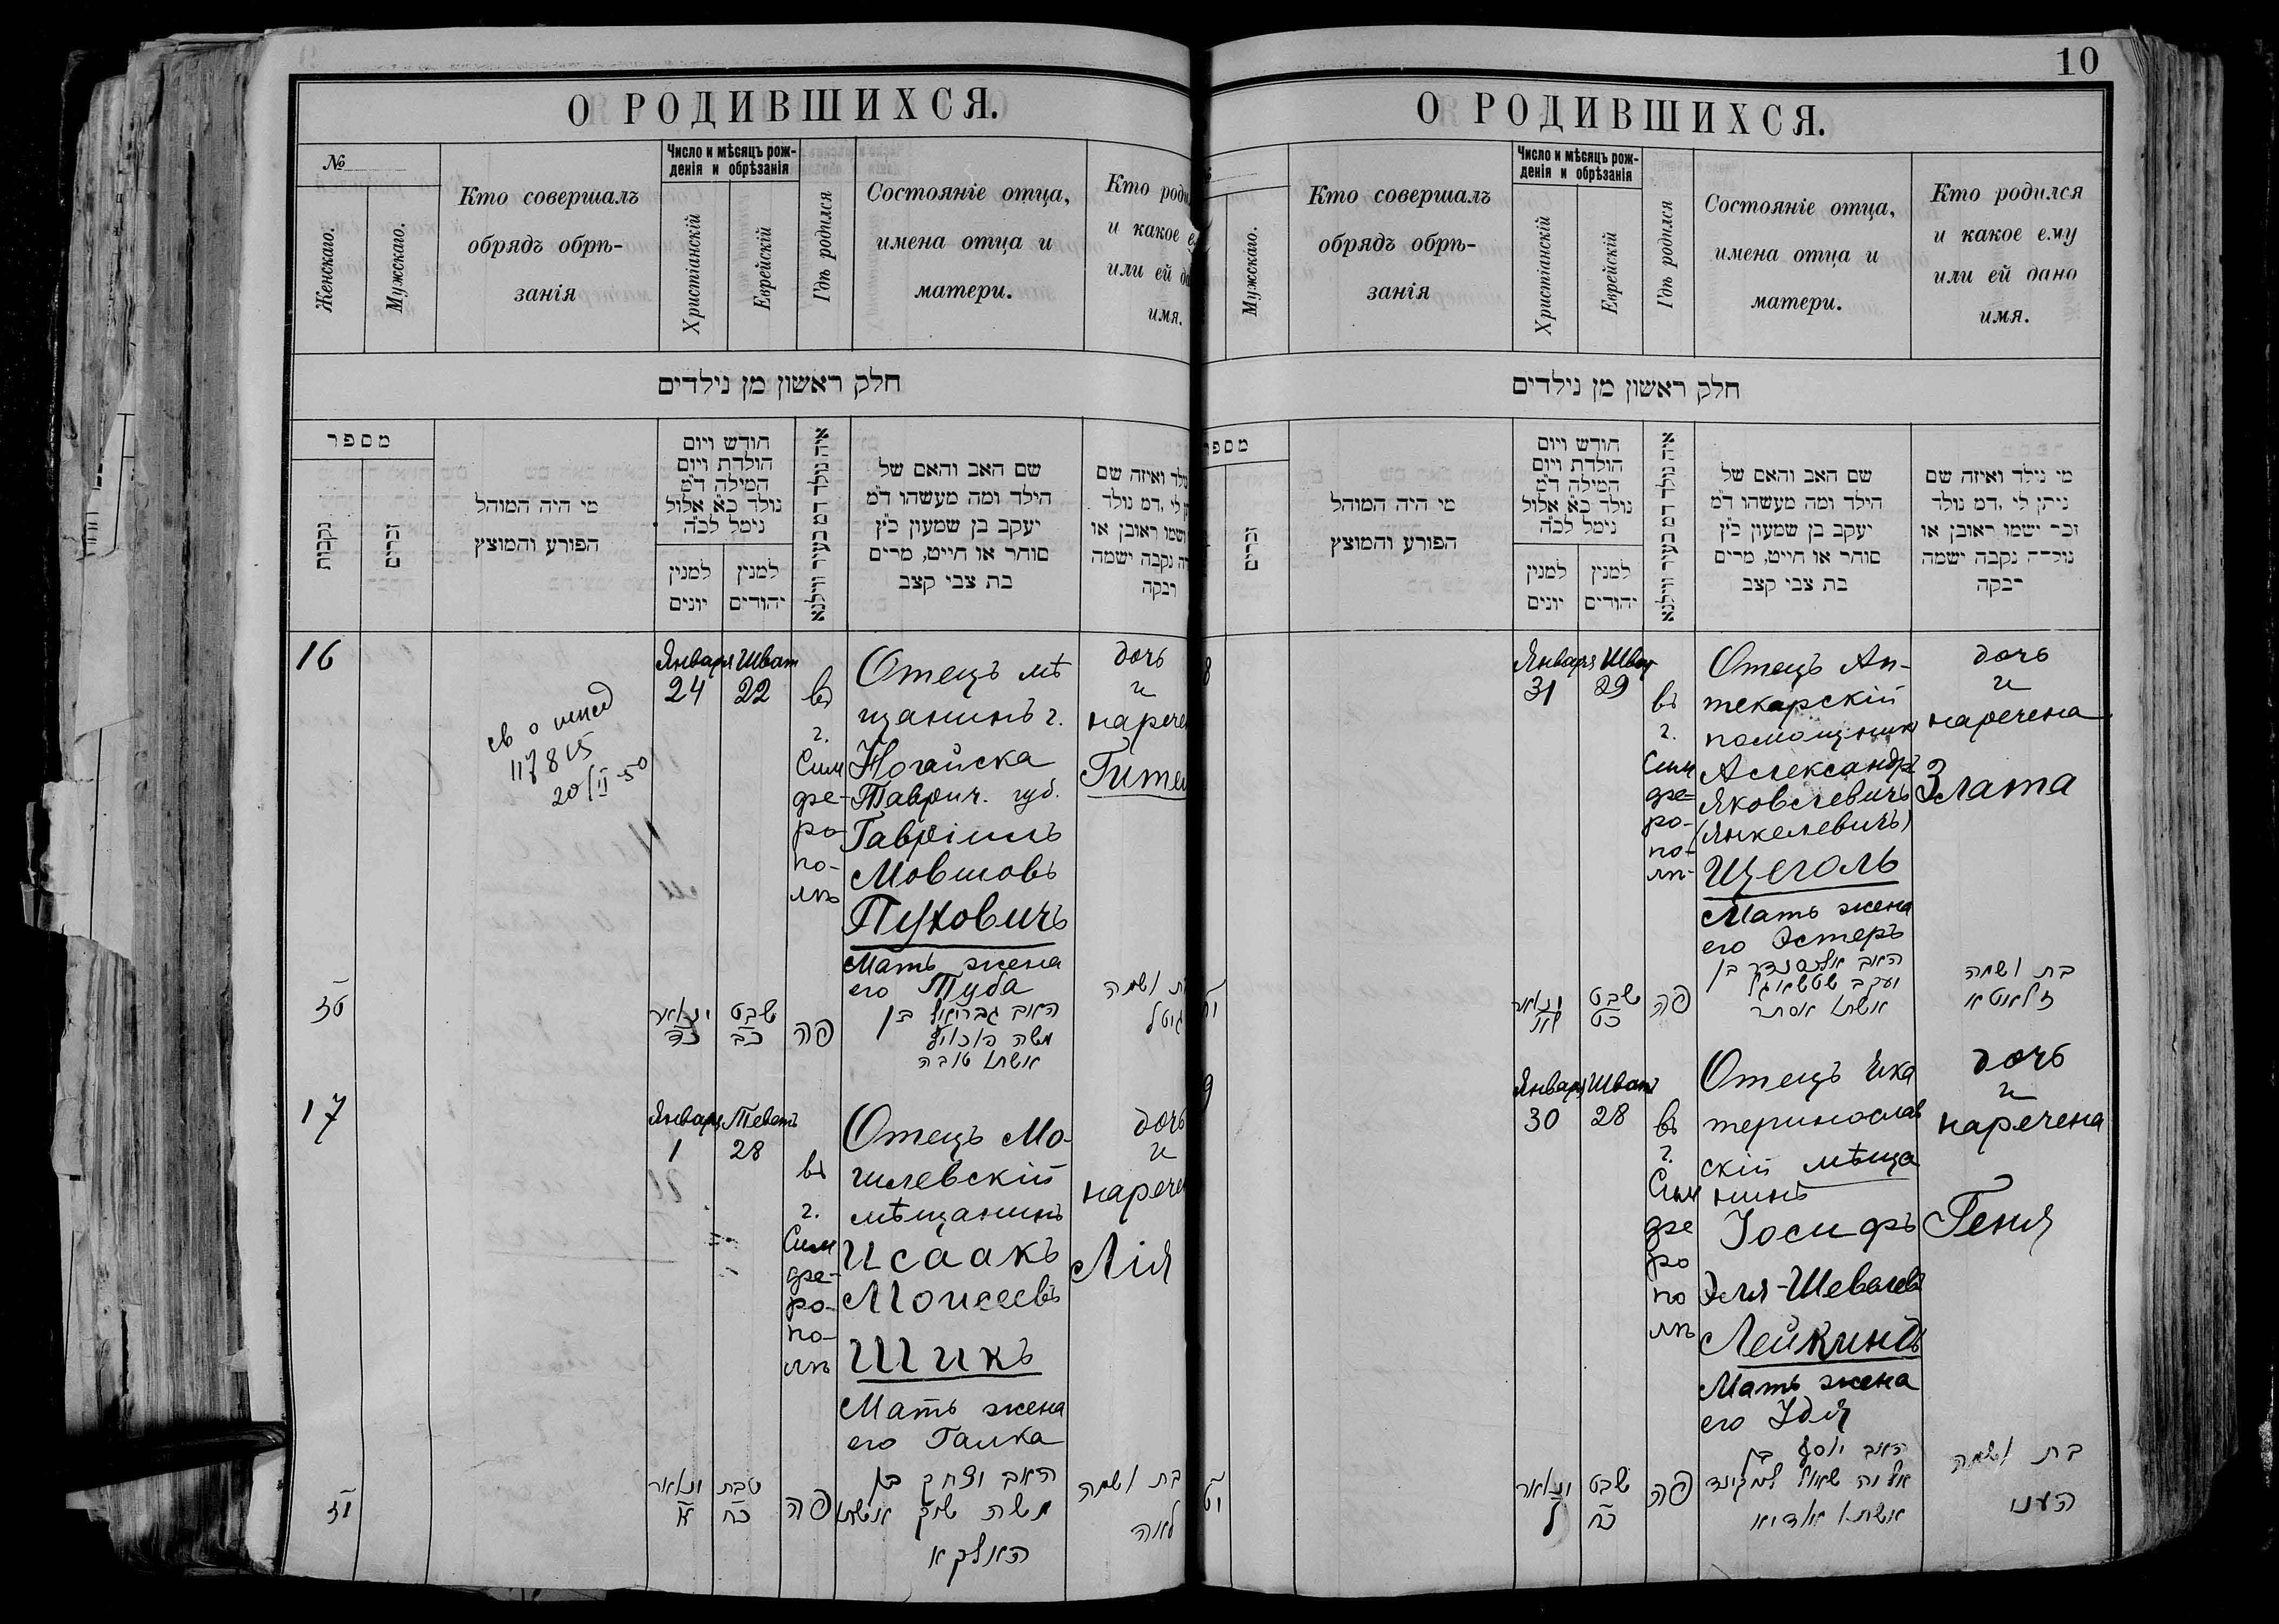 О РОДИВШИХСЯ.
№
Женскаго.
Мужскаго.
Кто совершалъ
обрядъ обрѣ-
занія
Число и мѣсяцъ рож-
денія и обрѣзанія
Христіанскій
Еврейскій
Гдѣ родился
Состояніе отца,
имена отца и
матери.
Кто роди
и какое е
или ей да
имя.
חלק ראשון מן נילדים
מספר
נקבות
זכרים
מי היה המוהל
הפורע והמוצץ
חודש ויום
הולדת ויום
המילה ד"מ
נולד כ"א אלול
נימל לכ"ה
למנין
יונים
למנין
יהודים
איה נולד דמ בעיר ווילנא
שם האב והאם של
הילד ומה מעשהו ד"מ
יעקב בן שמעון כ"ץ
סוחר או חייט, מרים
בת צבי קצב
ולד ואיזה שם
לי ,דמ נולד
ושמו ראובן או
דה נקבה ישמה
רבקה
16
св о
117815
20/II-50
Января
24
Шват
22
въ
г.
Сим
фе-
ро-
по-
лѣ
Отецъ мѣ
щанинъ г.
Ногайска
Таврич. губ.
Гавріилъ
Мовшовъ
Пуховичъ
Мать жена
его Туба
дочь
и
нарече
Гите
ינואר
כד
שבט
כב
פה
האב גבריאל בן
משה פוכוויץ
אשתו טובה
ת ושמה
גיטל
17
Января
1
Теветъ
28
въ
г.
Сим
фе-
ро-
по-
лѣ
Отецъ Мо-
гилевскій
мѣщанинъ
Исаакъ
Моисеевъ
Шикъ
Мать жена
его Галка
дочь
и
нарече
Лія
ינואר
א
טבת
כח
פה
האב יצחק בן
משה שיק אשתו
האלקא
בת ושמה
לאה
10
О РОДИВШИХСЯ.
Мужскаго.
Кто совершалъ
обрядъ обрѣ-
занія
Число и мѣсяцъ рож-
денія и обрѣзанія
Христіанскій
Еврейскій
Гдѣ родился
Состояніе отца,
имена отца и
матери.
Кто родился
и какое ему
или ей дано
имя.
חלק ראשון מן נילדים
מספר
זכרים
מי היה המוהל
הפורע והמוצץ
חודש ויום
הולדת ויום
המילה ד"מ
נולד כ"א אלול
נימל לכ"ה
למנין
יונים
למנין
יהודים
איה נולד דמ בעיר ווילנא
שם האב והאם של
הילד ומה מעשהו ד"מ
יעקב בן שמעון כ"ץ
סוחר או חייט, מרים
בת צבי קצב
מי נילד ואיזה שם
ניתן לי ,דמ נולד
זכר ישמו ראובן או
נולדה נקבה ישמה
רבקה
8
Января
31
Шват
29
въ
г.
Сим
фе-
ро-
по-
лѣ-
Отецъ Ап-
текарскій
помощникъ
Александръ
Яковлевичъ
(Янкелевичъ)
Щеголь
Мать жена
его Эстеръ
дочь
и
наречена
Злата
ינואר
לא
שבט
כט
פה
האב אלכסנדר בן
יעקב
אשתו אסתר
בת ושמה
זלאטא
9
Января
30
Шват
28
въ
г.
Сим
фе
ро
по
лѣ
Отецъ Ека
теринослав
скій мѣща
нинъ
Іосифъ
Эля-Шевелевъ
Лейкиндъ
Мать жена
его Удя
дочь
и
наречена
Геня
ינואר
ל
שבט
כח
פה
האב יוסף בן
אליה שאול לייקינד
אשתו אודיא
בת ושמה
העני